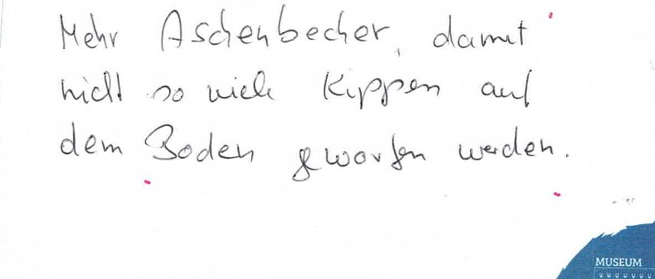 Mehr Aschenbecher, damit
nicht so viele Kippen auf
dem Boden geworfen werden.
MUSEUM